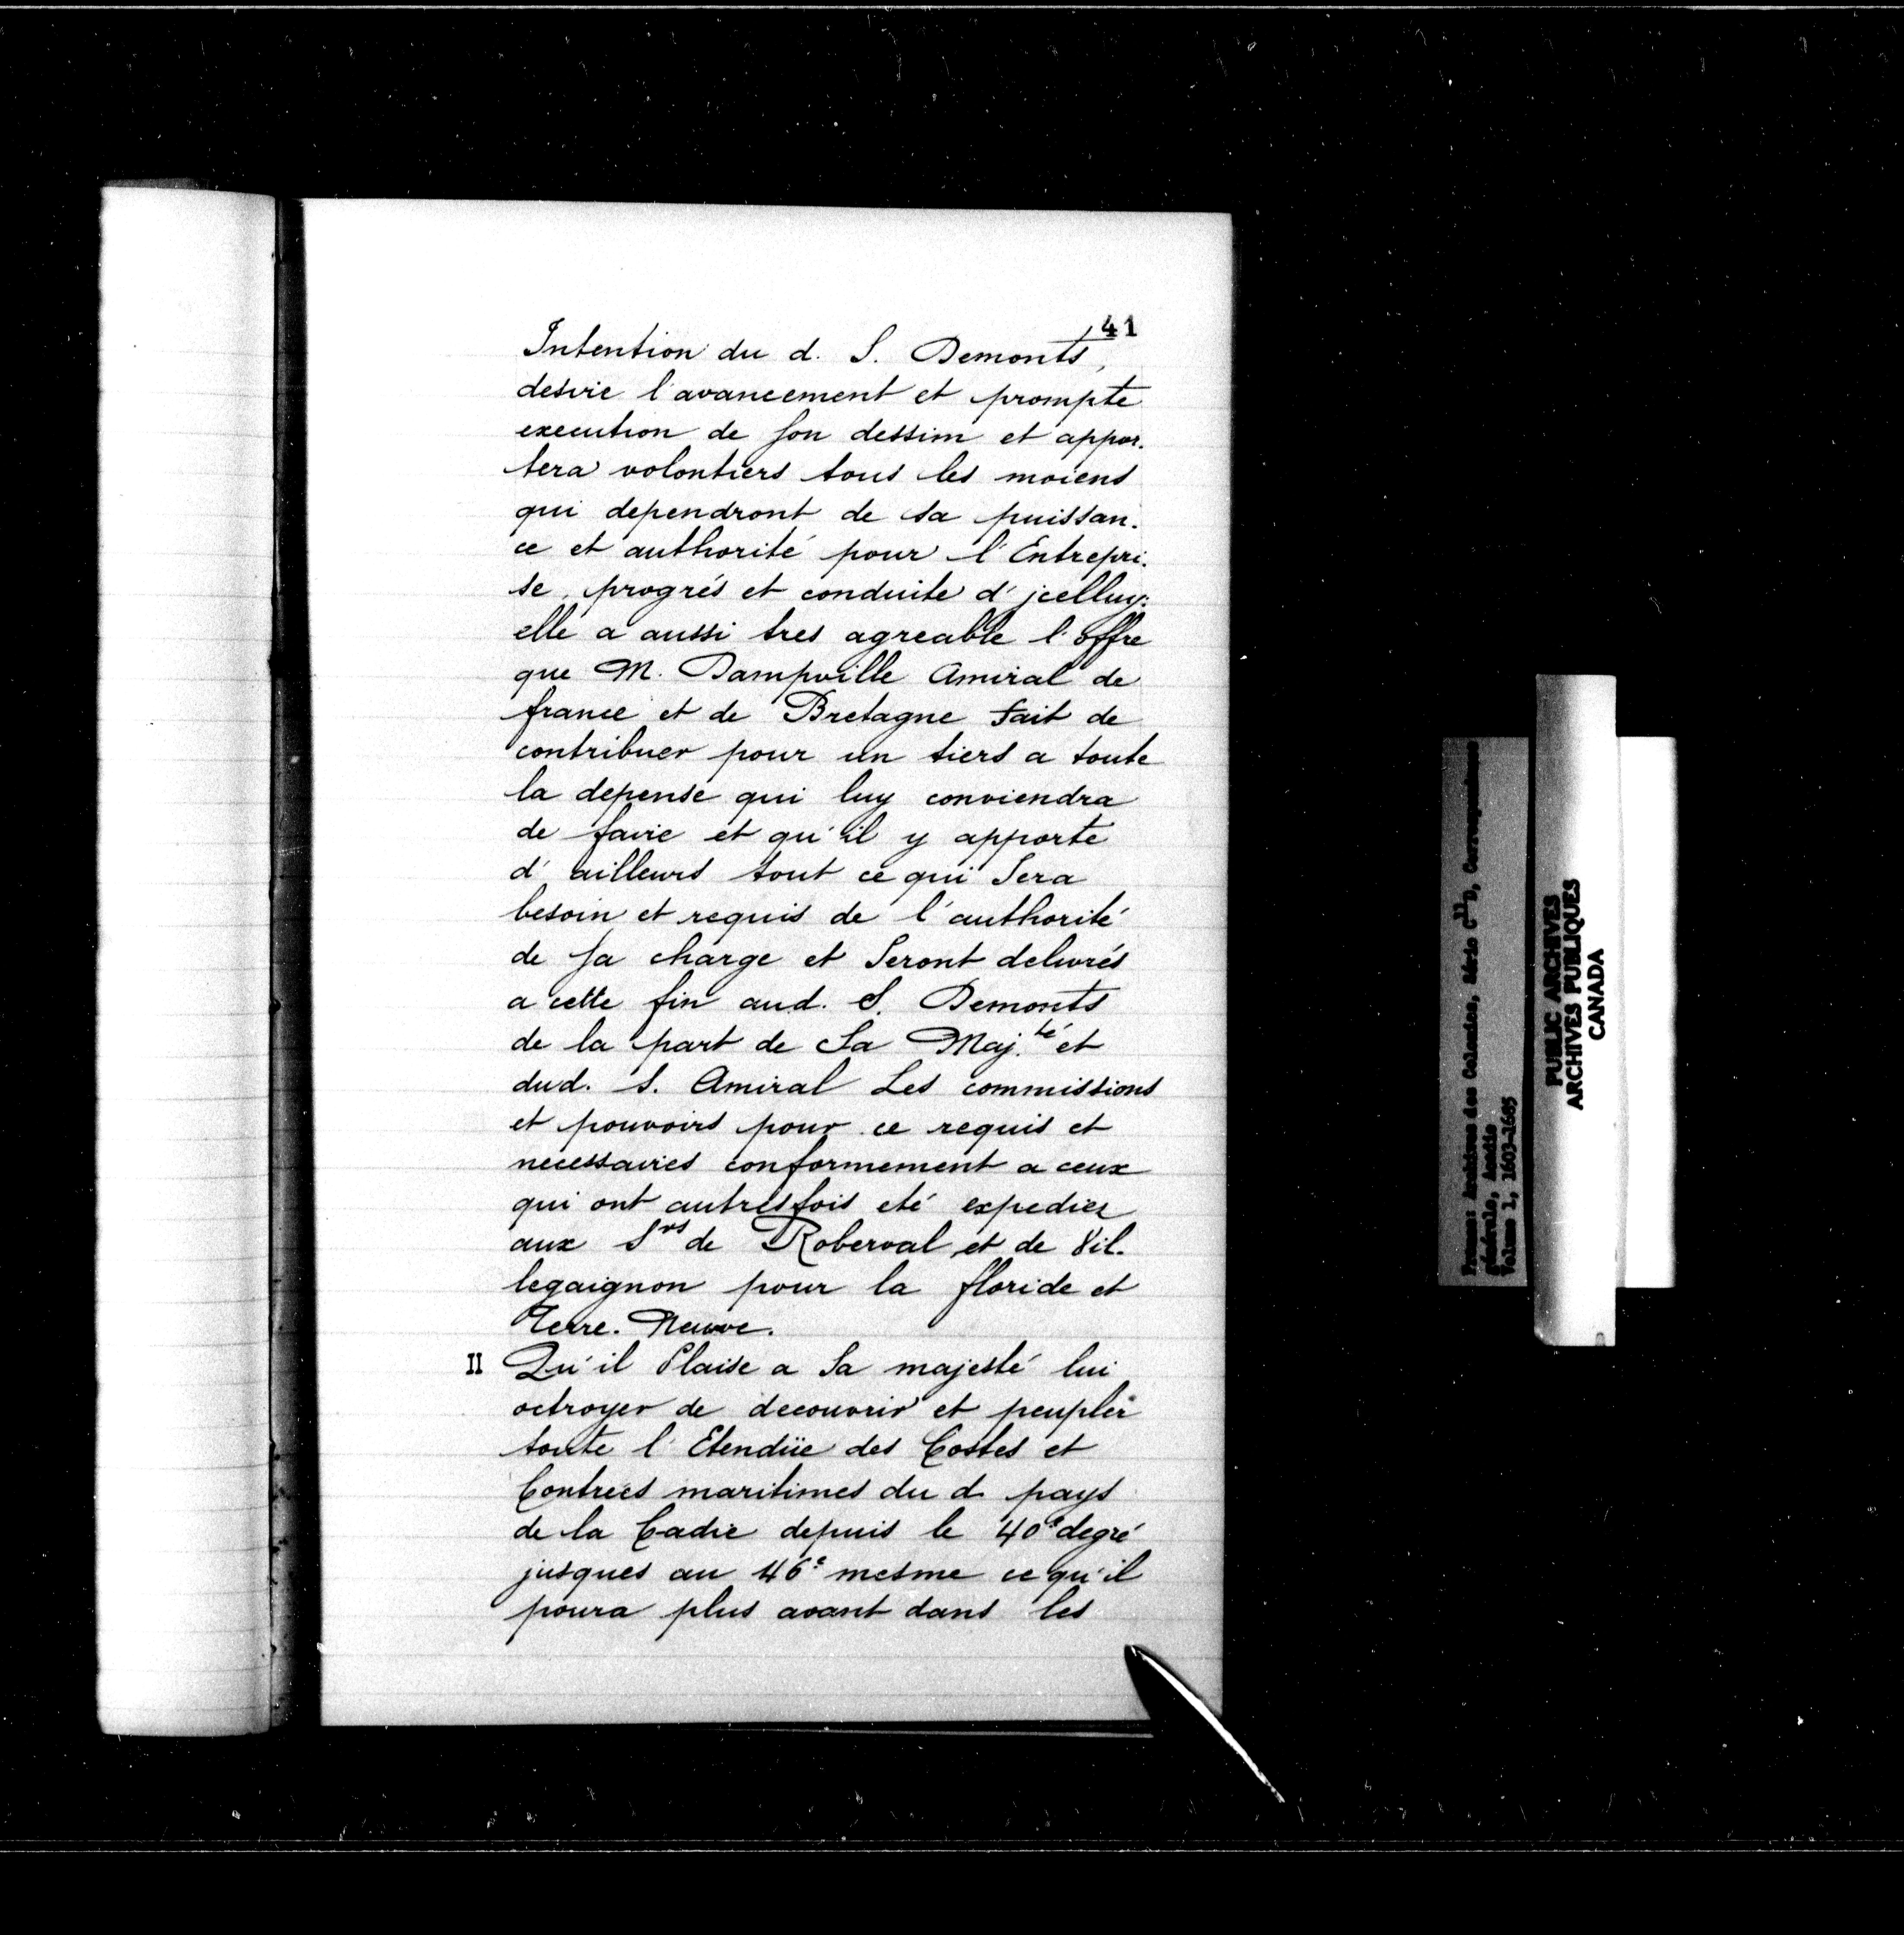 41
Intention du d. S. Demonts,
desire l'avancement et prompte
execution de son dessim et appor.
tera volontiers tous les moiens
qui dependront de sa puissan.
ce et authorité pour l'Entrepri.
se, progrés et conduite d'jcelluy:
elle a aussi tres agreable l'offre
que M. Dampville Amiral de
france et de Bretagne fait de
contribuer pour un tiers a toute
la depense qui luy conviendra
de faire et qu'il y apporte
d'ailleurs tout ce qui Sera
besoin et requis de l'authorité
de sa charge et Seront delivrés
a cette fin aud. S. Demonts
de la part de Sa Maj.té et
dud. S. Amiral Les commissions
et pouvoirs pour ce requis et
necessaires conformement a ceux
qui ont autresfois eté expediez
aux Srs de Roberval et de Vil.
legaignon pour la floride et
Terre-Neuve.
II Qu'il Plaise a Sa majesté lui
octroyer de decouvrir et peupler
toute l'Etendüe des Costes et
Contrees maritimes du d. pays
de la Cadie depuis le 40e degré
jusques au 46e mesme ce qu'il
poura plus avant dans les
France: Archives des Colonies, Série C11D, Correspondance
générale, Acadie
Volume 1, 1603-1685
PUBLIC ARCHIVES
ARCHIVES PUBLIQUES
CANADA